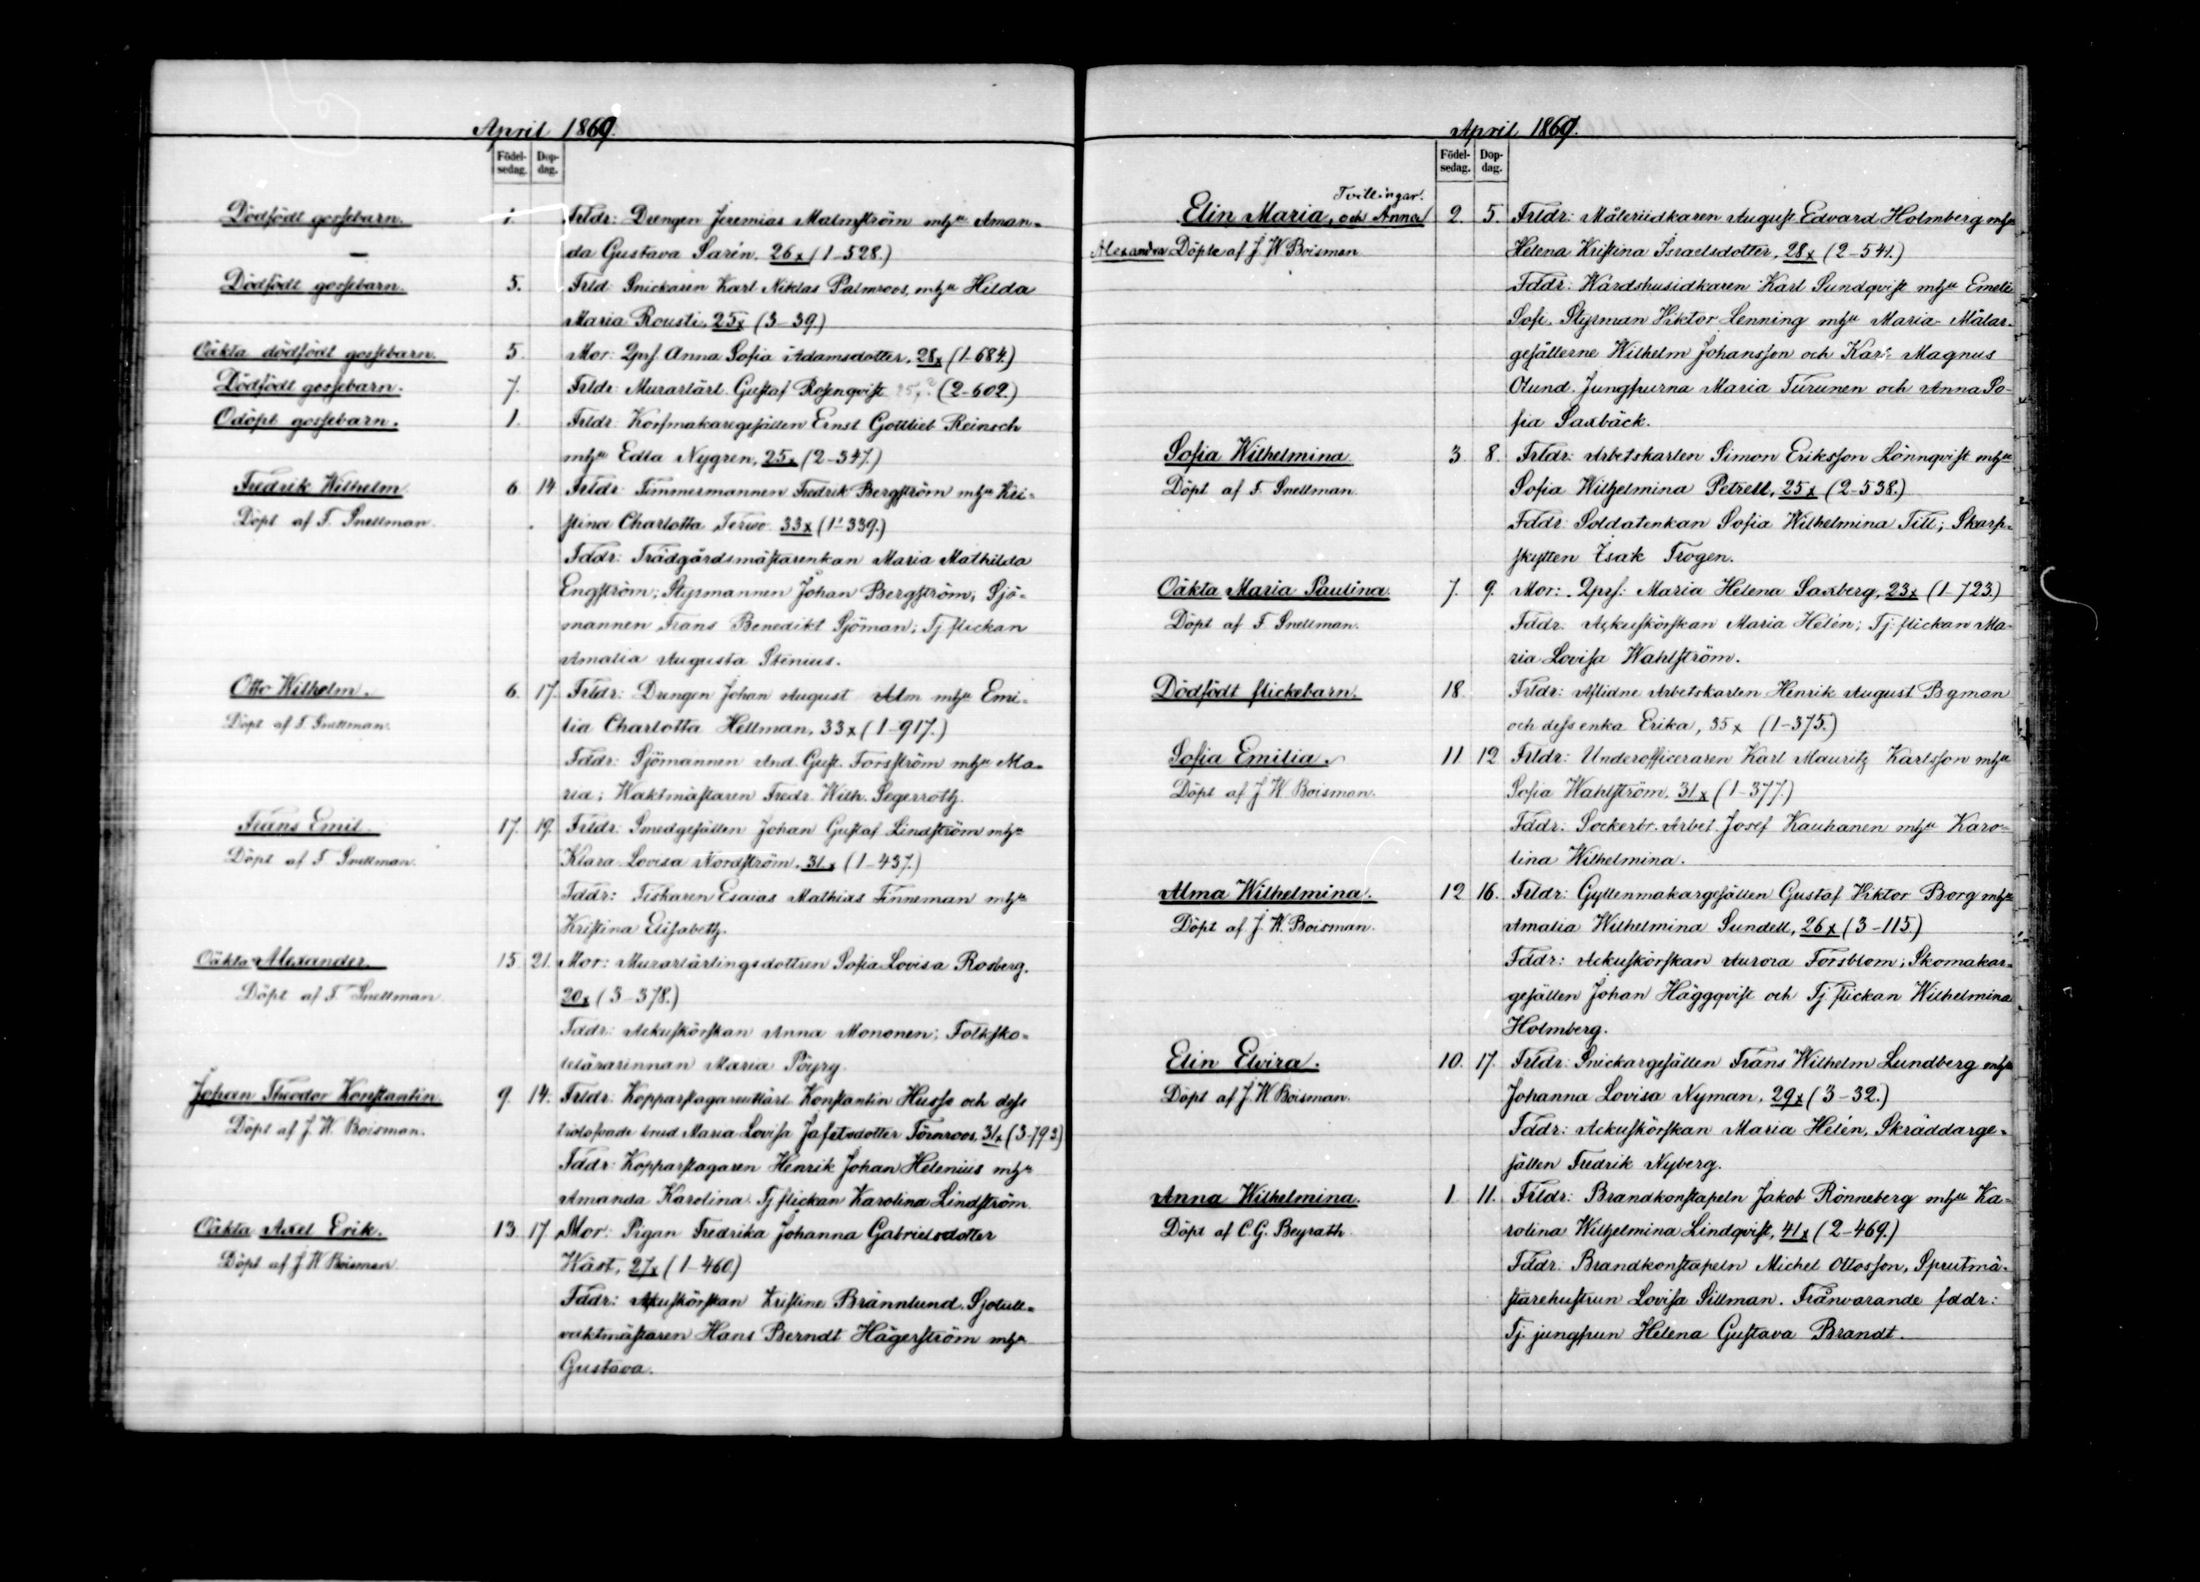 April 1869.
Födel-
sedag.
Dop-
dag.
Dödfödt gossebarn. 1. Frldr: Drengen Jeremias Malmström mhu Aman-
da Gustava Sarén. 26x (1-528.)
Dödfödt gossebarn. 3. Frld: Snickaren Karl Niklas Palmroos, mhu Hilda
Maria Rousti, 25x (3-39.)
Oäkta dödfödt gossebarn. 5. Mor: Qprs. Anna Sofia Adamsdotter, 28x (1-684.)
Dödfödt gossebarn. 7. Frldr: Murarlärl. Gustaf Rosenqvist 25,? (2-602.)
Odöpt gossebarn. 1. Frldr: Korfmakaregesällen Ernst Gottlieb Reinsch
mhu Edla Nygren, 25x (2-347.)
Fredrik Wilhelm 6. 14. Frldr: Timmermannen Fredrik Bergström mhu Kri-
Döpt af F. Snellman. stina Charlotta 33x (1-339.)
Fddr: Trädgårdsmästarenkan Maria Mathilda
Engström; Styrmannen Johan Bergström; Sjö-
mannen Frans Benedikt Sjöman; Tj. flickan
Amalia Augusta Stenius.
Otto Wilhelm. 6. 17. Frldr: Drengen Johan August Alm mhu Emi-
Döpt af F. Snellman. lia Charlotta Hellman, 33x (1-917.)
Fddr: Sjömannen And. Gust. Forsström mhu Ma-
ria; Waktmästaren Fredr. Wilh. Segerroth.
Frans Emil 17. 19. Frldr: Smedgesällen Johan Gustaf Lindström mhu
Döpt af F. Snellman. Klara Lovisa Nordström, 31x (1-437.)
Fddr: Fiskaren Esaias Mathias Finneman mhu
Kristina Elisabeth.
Oäkta Alexander. 15. 21. Mor: Murarlärlingsdottren Sofia Lovisa Rosberg.
Döpt af F. Snellman 20x (3-378.)
Fddr: Ackuskörskan Anna Mononen; Folksko-
lelärarinnan Maria Pöyry.
Johan Theodor Konstantin 9. 14. Frldr: Kopparslagarelärl. Konstantin Husso och dess
Döpt af J. W. Boisman. trolofvade brud Maria Lovisa Jafetsdotter Törnroos, 31x (3-793)
Fddr: Kopparslagaren Henrik Johan Helenius mhu
Amanda Karolina. Tj. flickan Karolina Lindström.
Oäkta Axel Erik. 13. 17. Mor: Pigan Fredrika Johanna Gabrielsdotter
Döpt af J. W. Boisman. Wäst, 27x (1-460.)
Fddr: Ackuskörskan Kristine Brännlund. Sjötull-
vaktmästaren Hans Berndt Hägerström mhu
Gustava.
April 1869.
Födel-
sedag.
Dop-
dag.
Tvillingar.
Elin Maria, och Anna 2. 5. Frldr: Måleriidkaren August Edvard Holmberg mhu
Alexandra Döpte af J. W. Boisman Helena Kristina Israelsdotter, 28x (2-541.)
Fddr: Wärdshusidkaren Karl Sundqvist mhu Emeli
Sofi. Styrman Viktor Henning mhu Maria. Målar-
gesällerne Wilhelm Johansson och Karl Magnus
Ölund. Jungfrurna Maria Turunen och Anna So-
fia Saxbäck.
Sofia Wilhelmina 3. 8. Frldr: Arbetskarlen Simon Eriksson Lönnqvist mhu
Döpt af F. Snellman. Sofia Wilhelmina Petrell, 25x (2-538.)
Fddr: Soldatenkan Sofia Wilhelmina Till; Skarp-
skytten Isak Trogen.
Oäkta Maria Paulina. 7. 9. Mor: Qprs: Maria Helena Saxberg, 23x (1-723.)
Döpt af F. Snellman. Fddr: Ackuskörskan Maria Helén; Tj. flickan Ma-
ria Lovisa Wahlström.
Dödfödt flickebarn. 18. Frldr: Aflidne Arbetskarlen Henrik August Bgman
och dess enka Erika, 35x (1-375.)
Sofia Emilia. 11 12 Frldr: Underofficeraren Karl Mauritz Karlsson mhu
Döpt af J. W. Boisman. Sofia Wahlström, 31x (1-377.)
Fddr: Sockerbr. Arbet. Josef Kauhanen mhu Karo-
lina Wilhelmina.
Alma Wilhelmina. 12 16. Frldr: Gyllenmakargesällen Gustaf Viktor Borg mhu
Döpt af J. W. Boisman. Amalia Wilhelmina Sundell, 26x (3-115)
Fddr: Ackuskörskan Aurora Forsblom; Skomakar-
gesällen Johan Häggqvist och Tj. flickan Wilhelmina
Holmberg.
Elin Elvira. 10. 17. Frldr: Snickargesällen Frans Wilhelm Lundberg mhu
Döpt af J. W. Boisman. Johanna Lovisa Nyman, 29x (3-32.)
Fddr: Ackuskörskan Maria Helén, Skräddarge-
sällen Fredrik Nyberg.
Anna Wilhelmina. 1. 11. Frldr: Brandkonstapeln Jakob Rönneberg mhu Ka-
Döpt af C. G. Beyrath. rolina Wilhelmina Lindqvist, 41x (2-469.)
Fddr: Brandkonstapeln Michel Ottosson, Sprutmä-
starehustrun Lovisa Sillman. Frånvarande fddr:
Tj. jungfrun Helena Gustava Brandt.